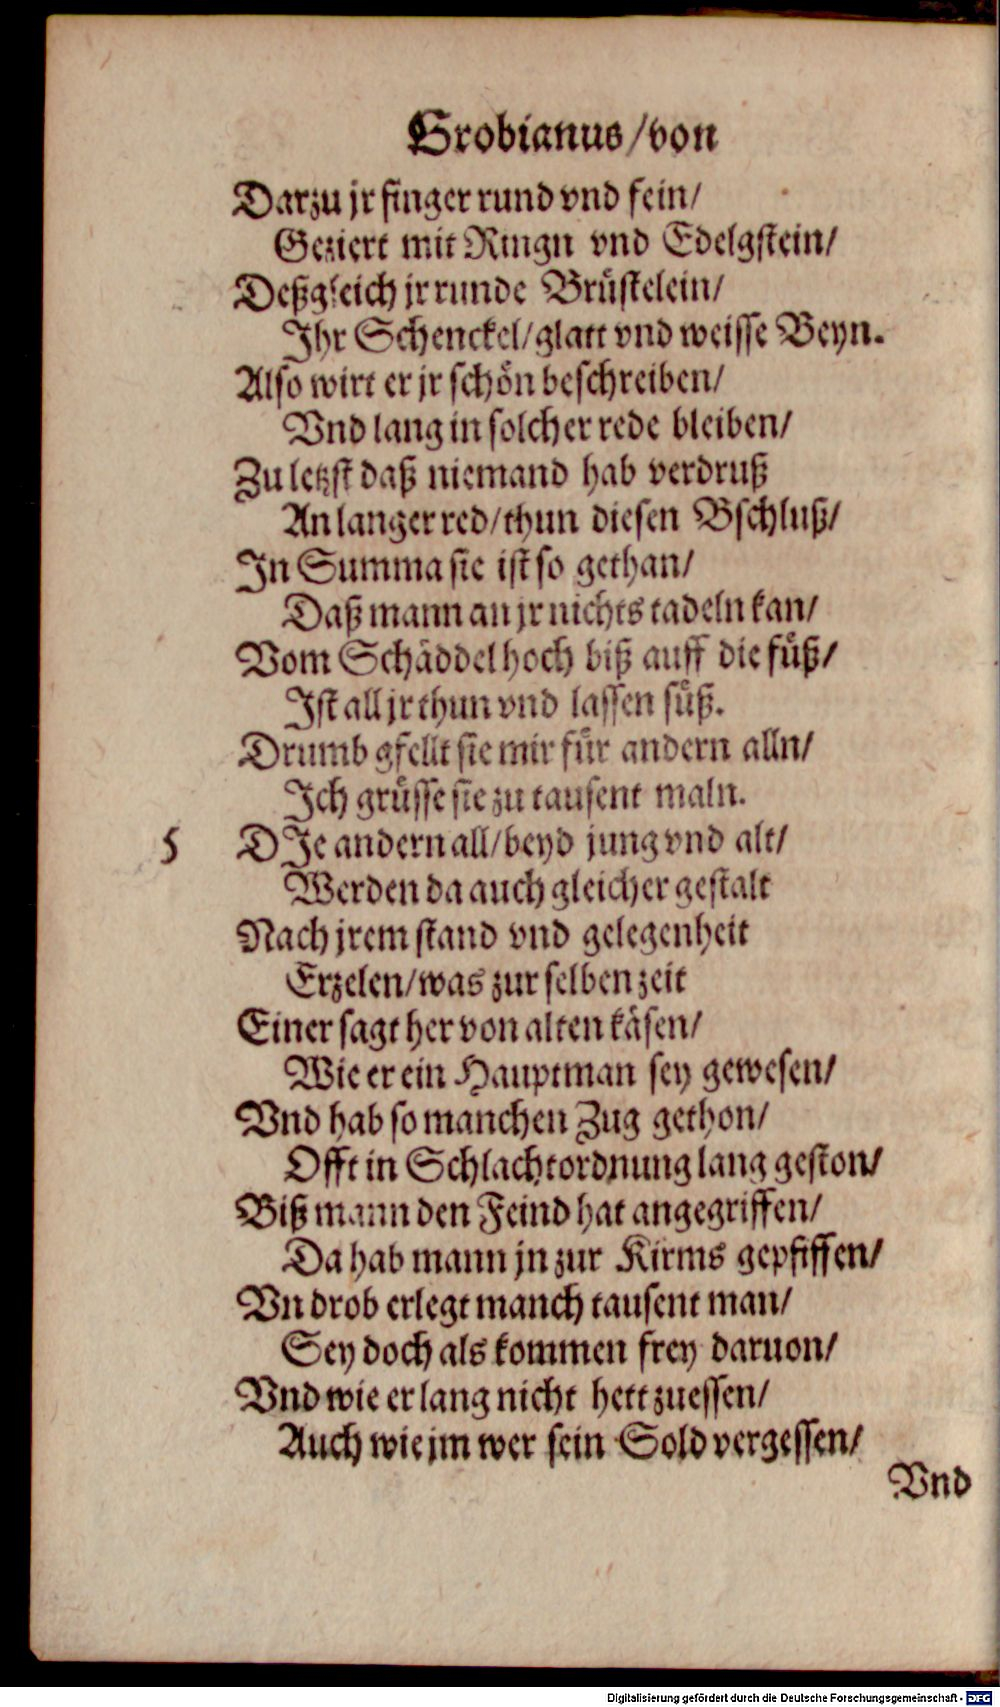 Grobianus/von
Darzu jr finger rund vnd fein/
Geziert mit Ringn vnd Edelgstein/
Deßgleich jr runde Brüstelein/
Ihr Schenckel/glatt vnd weisse Beyn.
Also wirt er jr schön beschreiben/
Vnd lang in solcher rede bleiben/
Zu letzst daß niemand hab verdruß
An langer red/thun diesen Bschluß/
In Summa sie ist so gethan/
Daß mann an jr nichts tadeln kan/
Vom Schäddel hoch biß auff die füß/
Ist all jr thun vnd lassen süß.
Drumb gfellt sie mir für andern alln/
Ich grüsse sie zu tausent maln.
5 DIe andern all/beyd jung vnd alt/
Werden da auch gleicher gestalt
Nach jrem stand vnd gelegenheit
Erzelen/was zur selben zeit
Einer sagt her von alten käsen/
Wie er ein Hauptman sey gewesen/
Vnd hab so manchen Zug gethon/
Offt in Schlachtordnung lang geston/
Biß mann den Feind hat angegriffen/
Da hab mann jn zur Kirms gepfiffen/
Vn drob erlegt manch tausent man/
Sey doch als kommen frey daruon/
Vnd wie er lang nicht hett zuessen/
Auch wie jm wer sein Sold vergessen/
Vnd
Digitalisierung gefördert durch die Deutsche Forschungsgemeinschaft - DFG